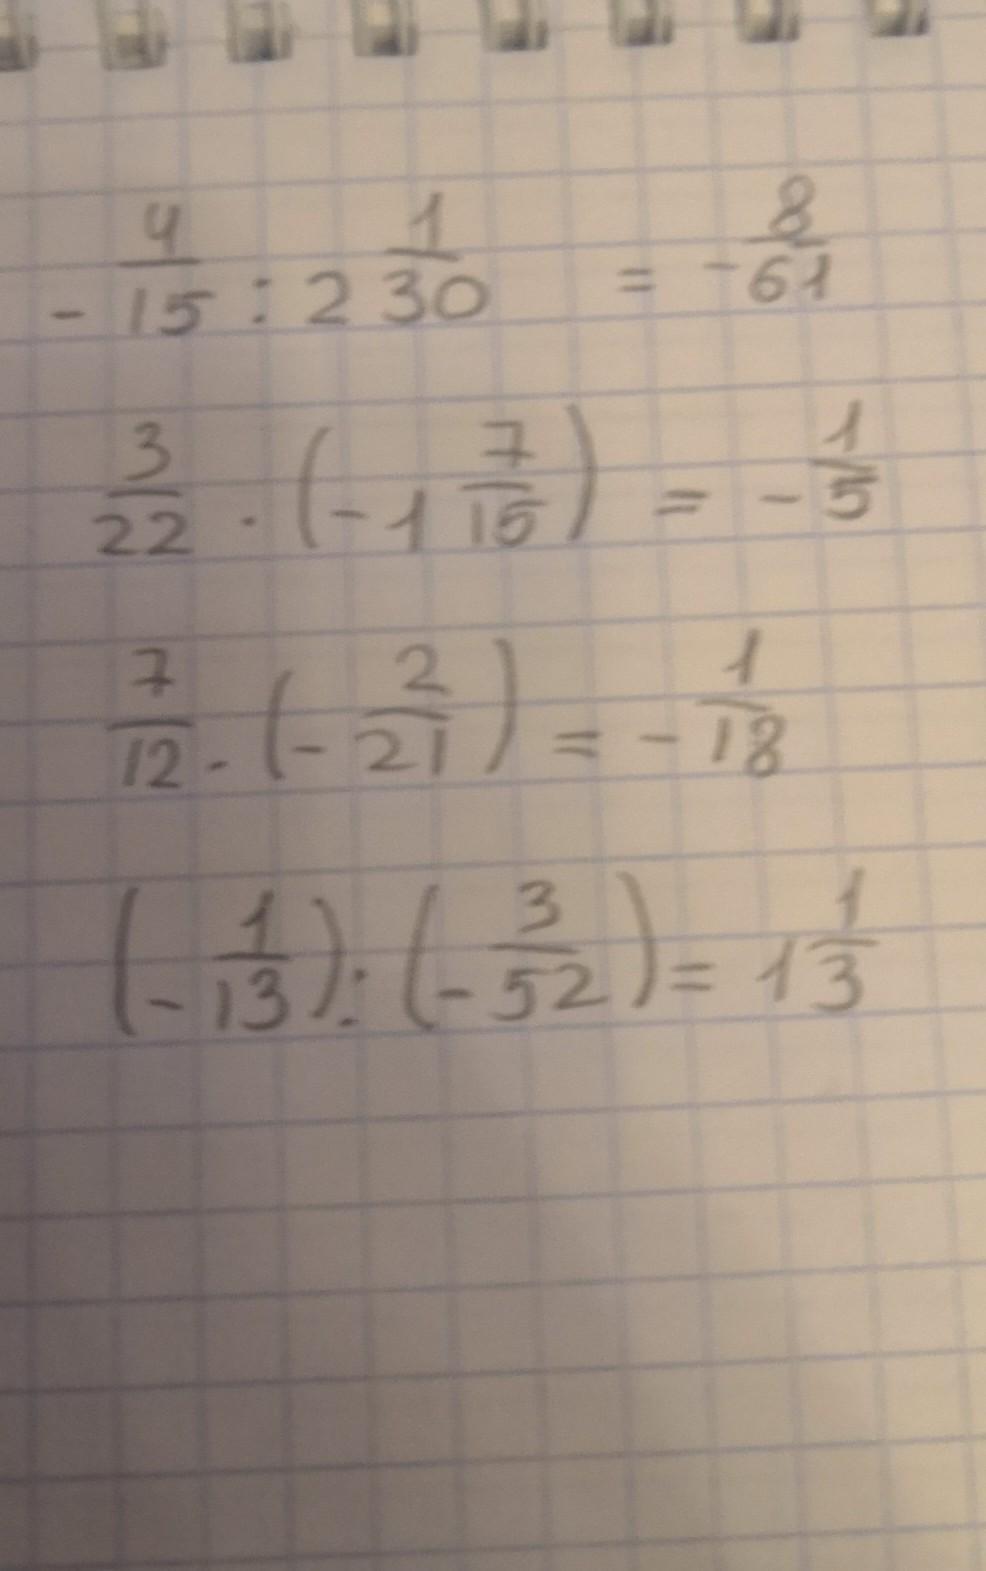 -4/15 : 2 1/30 = -8/61
3/22 · (-1 7/15) = -1/5
7/12 · (-2/21) = -1/18
(-1/13) : (-3/52) = 1 1/3